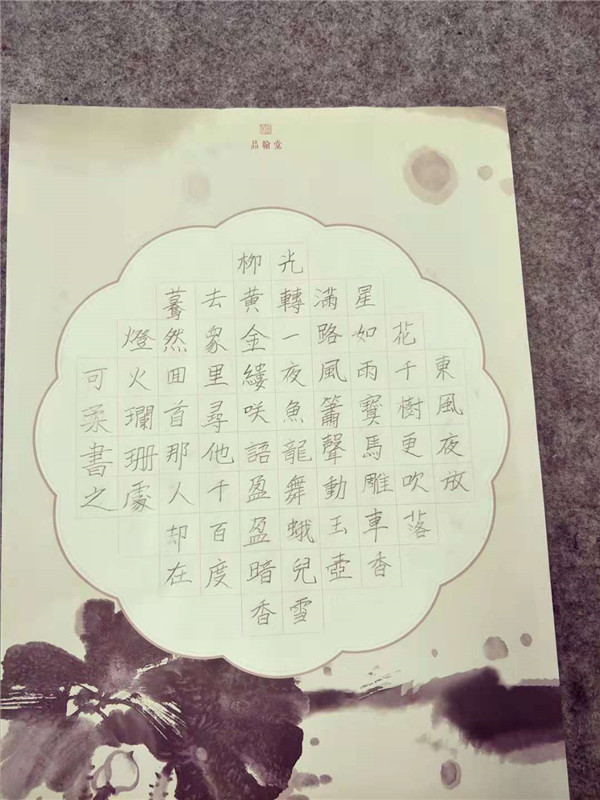 品翰堂
東風夜放
花千樹更吹落
星如雨寶馬雕車香
滿路風簫聲動玉壺
光轉一夜魚龍舞蛾兒雪
柳黄金縷咲語盈盈暗香
去衆里尋他千百度
驀然囬首那人却在
燈火瓓珊處
可柔書之